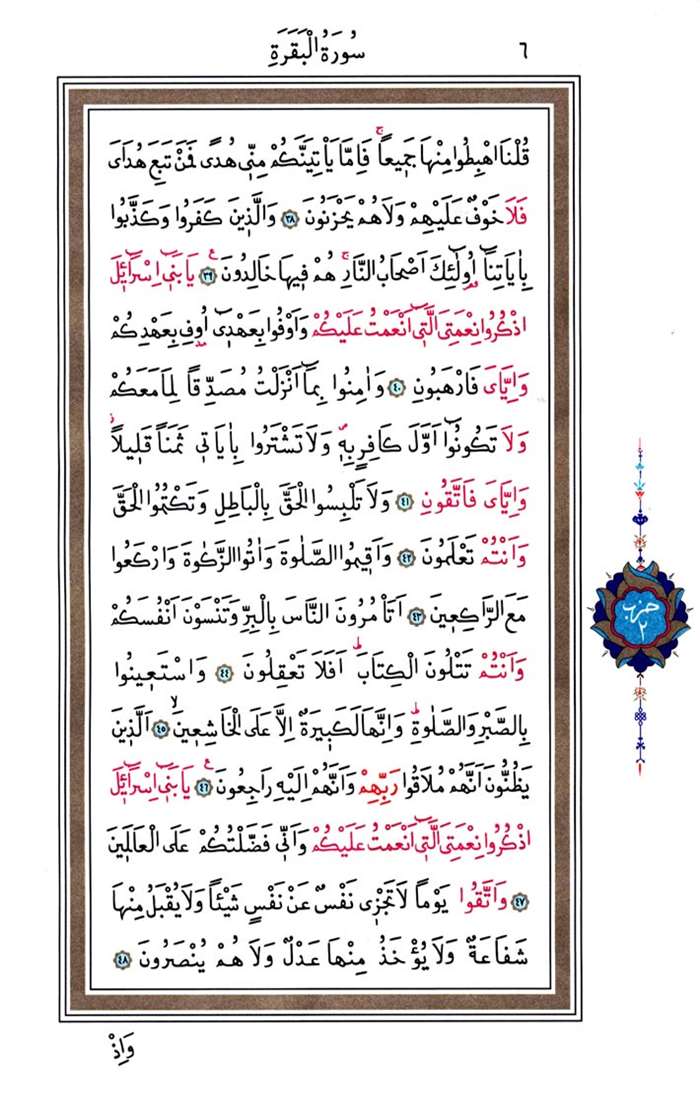 ٦
سُورَةُ الْبَقَرَةِ
قُلْنَا اهْبِطُوا مِنْهَا جَمٖيعاًۚ فَاِمَّا يَأْتِيَنَّكُمْ مِنّٖى هُدًى فَمَنْ تَبِعَ هُدَاىَ
فَلَا خَوْفٌ عَلَيْهِمْ وَلَا هُمْ يَحْزَنُونَ ﴿٣٨﴾ وَالَّذٖينَ كَفَرُوا وَكَذَّبُوا
بِاٰيَاتِنَٓا اُو۬لٰٓئِكَ اَصْحَابُ النَّارِۚ هُمْ فٖيهَا خَالِدُونَࣖ ﴿٣٩﴾ يَا بَنٖٓى اِسْرَٓائٖلَ
اذْكُرُوا نِعْمَتِىَ الَّتٖٓى اَنْعَمْتُ عَلَيْكُمْ وَاَوْفُوا بِعَهْدٖٓى اُو۫فِ بِعَهْدِكُمْ
وَاِيَّاىَ فَارْهَبُونِ ﴿٤٠﴾ وَاٰمِنُوا بِمَٓا اَنْزَلْتُ مُصَدِّقاً لِمَا مَعَكُمْ
وَلَا تَكُونُٓوا اَوَّلَ كَافِرٍ بِهٖࣕ وَلَا تَشْتَرُوا بِاٰيَاتٖى ثَمَناً قَلٖيلاًؗ
وَاِيَّاىَ فَاتَّقُونِ ﴿٤١﴾ وَلَا تَلْبِسُوا الْحَقَّ بِالْبَاطِلِ وَتَكْتُمُوا الْحَقَّ
وَاَنْتُمْ تَعْلَمُونَ ﴿٤٢﴾ وَاَقٖيمُوا الصَّلٰوةَ وَاٰتُوا الزَّكٰوةَ وَارْكَعُوا
مَعَ الرَّاكِعٖينَ ﴿٤٣﴾ اَتَأْمُرُونَ النَّاسَ بِالْبِرِّ وَتَنْسَوْنَ اَنْفُسَكُمْ
وَاَنْتُمْ تَتْلُونَ الْكِتَابَؕ اَفَلَا تَعْقِلُونَ ﴿٤٤﴾ وَاسْتَعٖينُوا
بِالصَّبْرِ وَالصَّلٰوةِؕ وَاِنَّهَا لَكَبٖيرَةٌ اِلَّا عَلَى الْخَاشِعٖينَۙ ﴿٤٥﴾ اَلَّذٖينَ
يَظُنُّونَ اَنَّهُمْ مُلَاقُوا رَبِّهِمْ وَاَنَّهُمْ اِلَيْهِ رَاجِعُونَࣖ ﴿٤٦﴾ يَا بَنٖٓى اِسْرَٓائٖلَ
اذْكُرُوا نِعْمَتِىَ الَّتٖٓى اَنْعَمْتُ عَلَيْكُمْ وَاَنّٖى فَضَّلْتُكُمْ عَلَى الْعَالَمٖينَ
﴿٤٧﴾ وَاتَّقُوا يَوْماً لَا تَجْزٖى نَفْسٌ عَنْ نَفْسٍ شَيْـٔاً وَلَا يُقْبَلُ مِنْهَا
شَفَاعَةٌ وَلَا يُؤْخَذُ مِنْهَا عَدْلٌ وَلَا هُمْ يُنْصَرُونَ ﴿٤٨﴾
حزب
٢
وَاِذْ